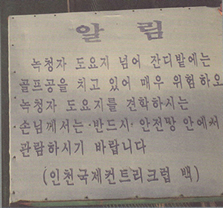 알림
녹청자 도요지 넘어 잔디밭에는
골프공을 치고 있어 매우 위험하오
녹청자 도요지를 견학하시는
손님께서는·반드시·안전망 안에서
관람하시기 바랍니다
(인천국제컨트리크럽 백)